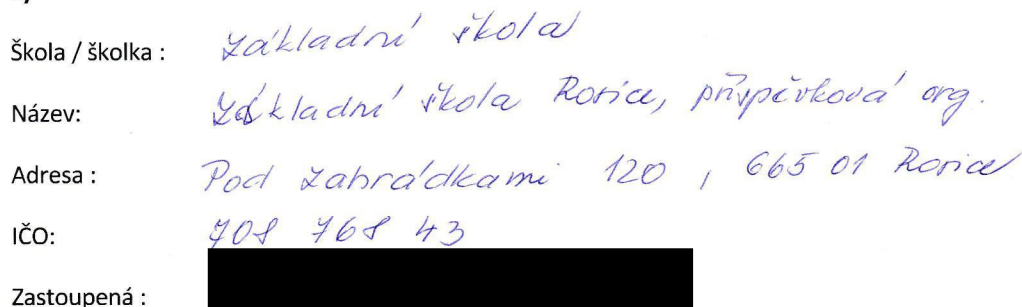 Škola / školka : Základní škola
Název: Základní škola Rosice, příspěvková org.
Adresa : Pod Zahrádkami 120, 665 01 Rosice
IČO: 708 768 43
Zastoupená :